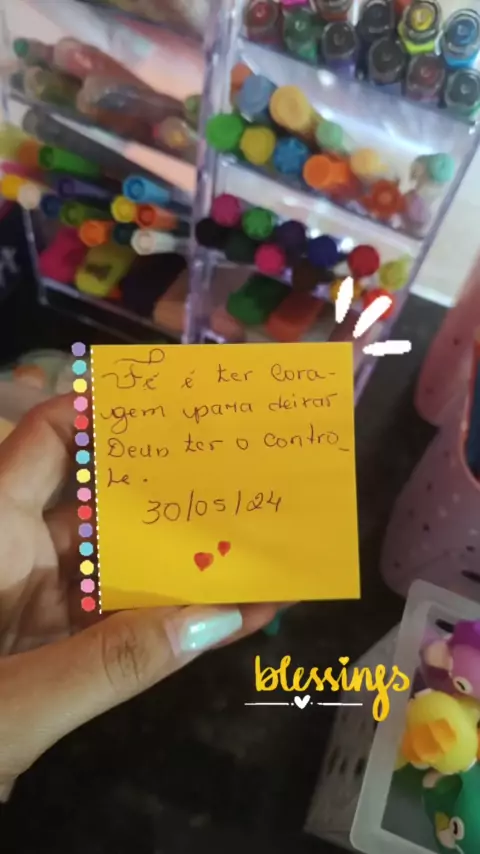 Fé é ter Cora-
gem para deixar
Deus ter o contro_
le.
30/05/24
blessings